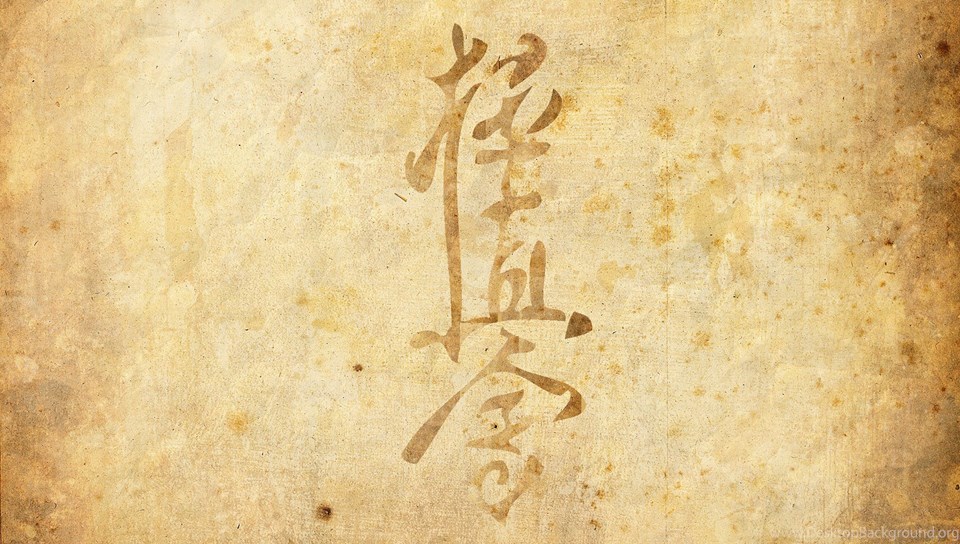 極真會
www.DesktopBackground.org